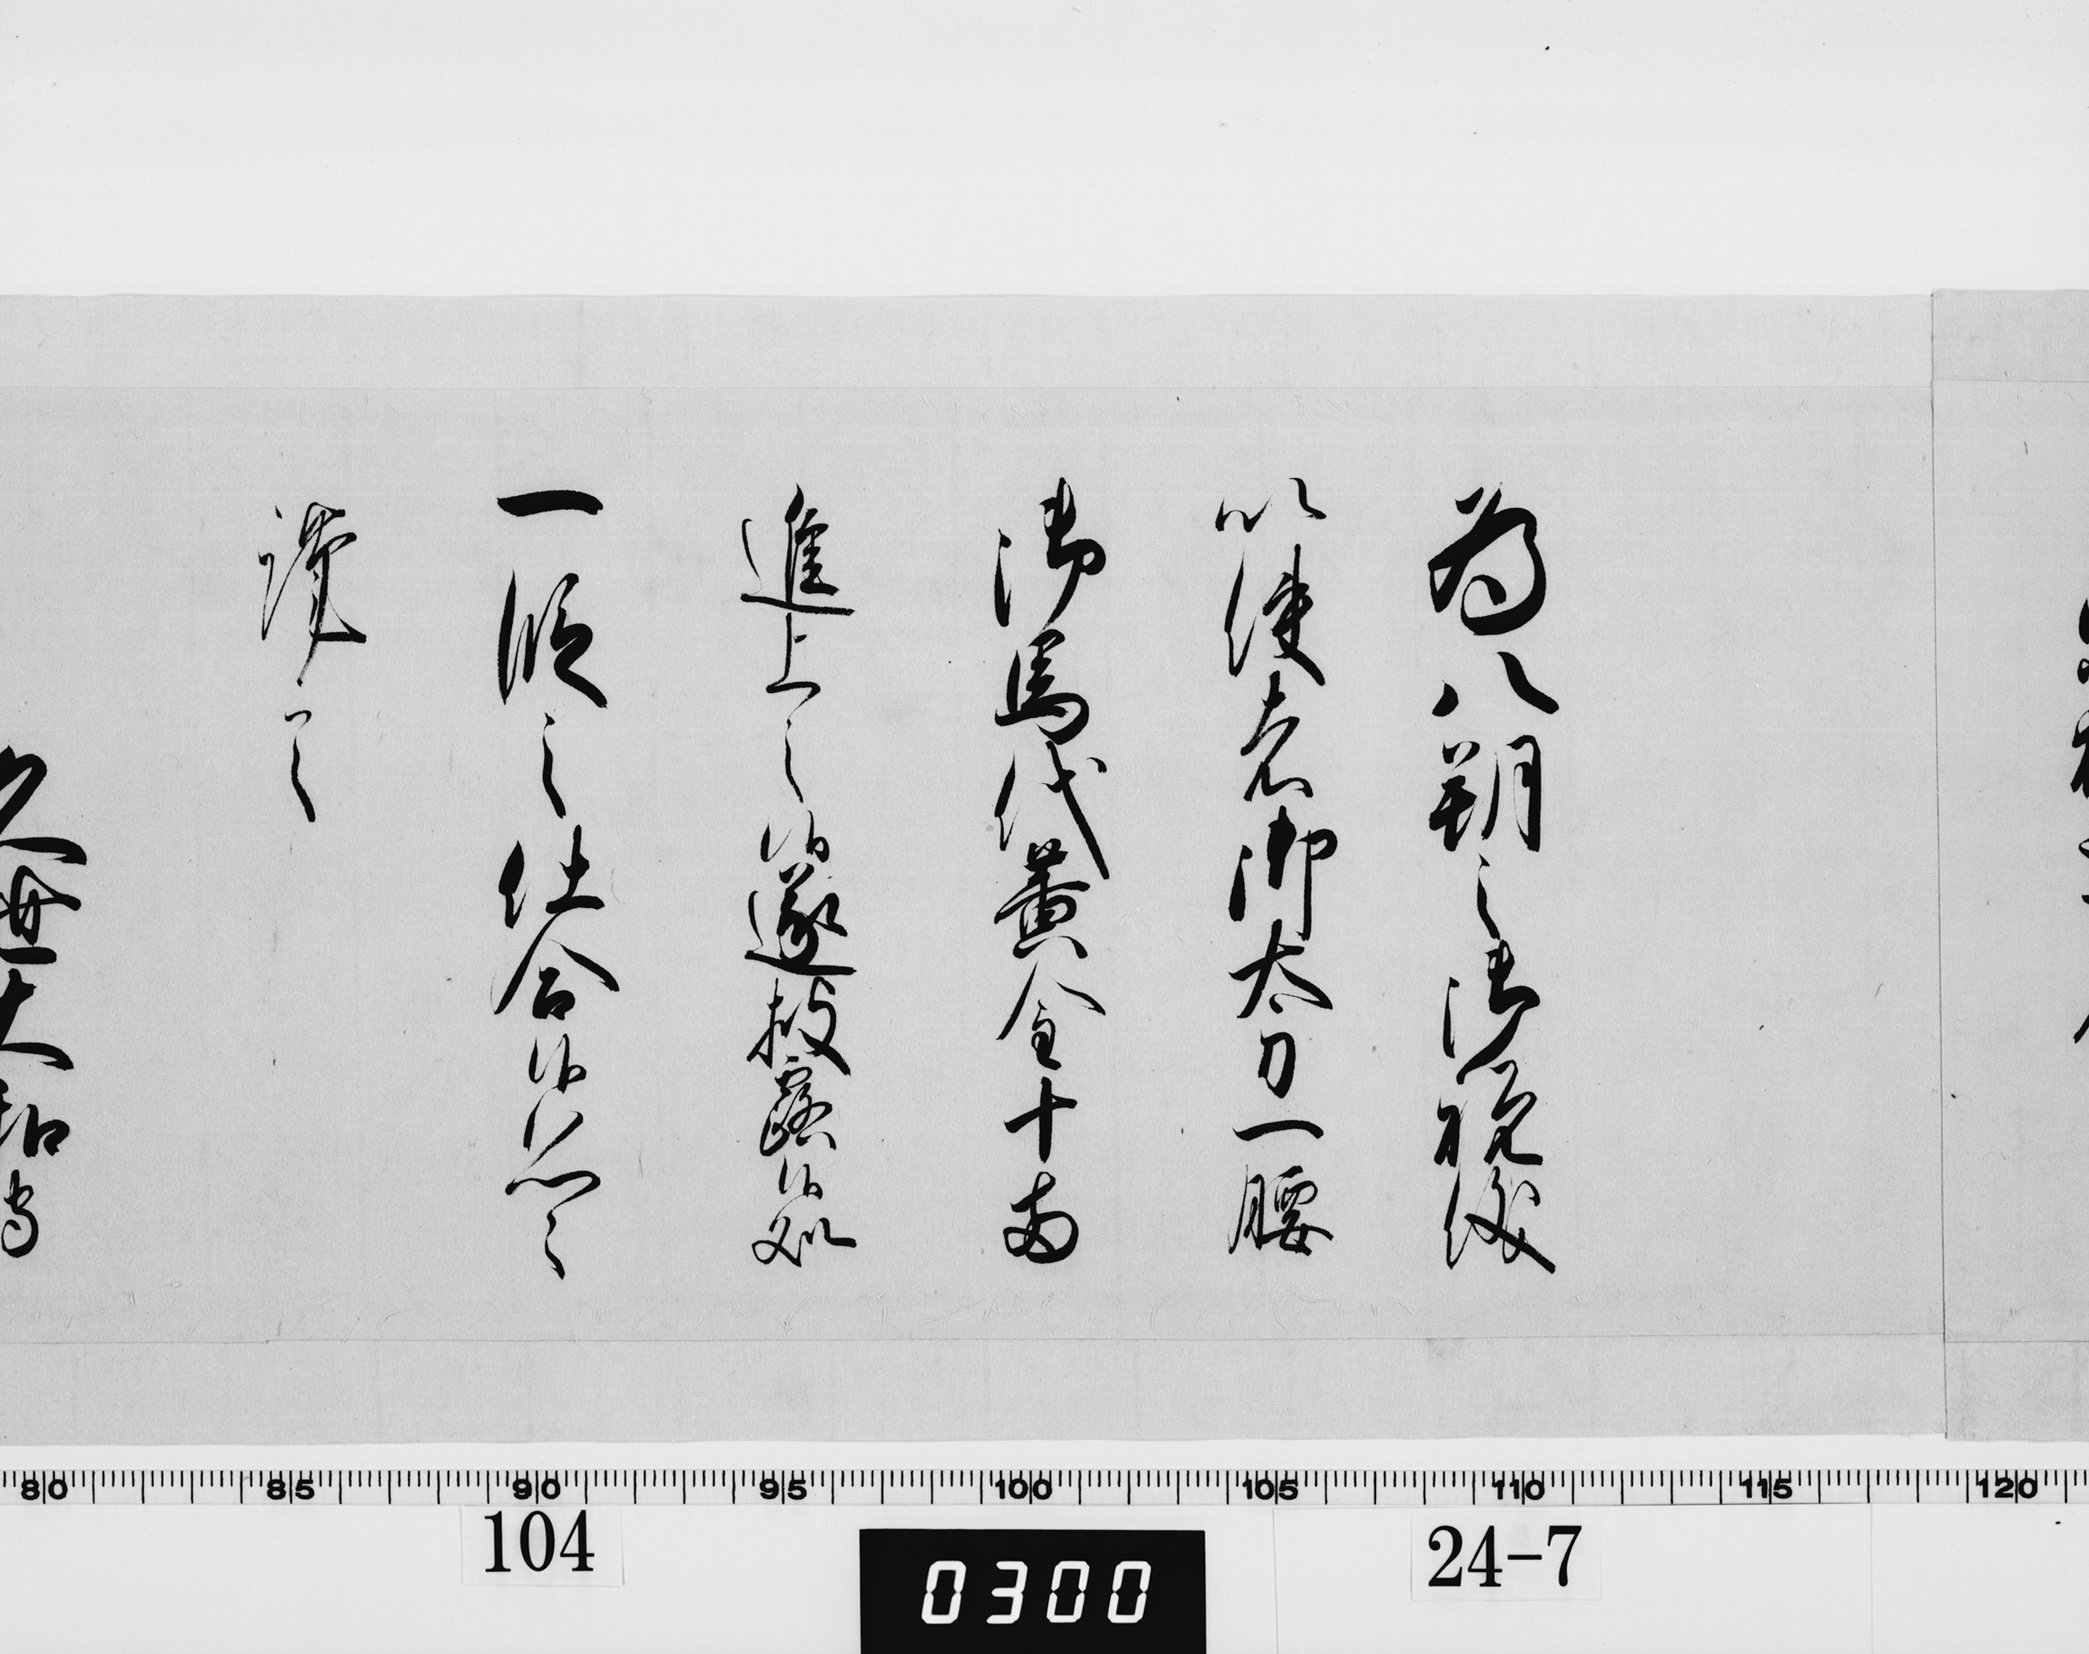 為八朔之御祝儀
以使者御太刀一腰
御馬代黄金十両
進上之候遂披露候処
一段之仕合候恐々
謹言
久世大和守
80 85 90 95 100 105 110 115 120
104
0300
24-7